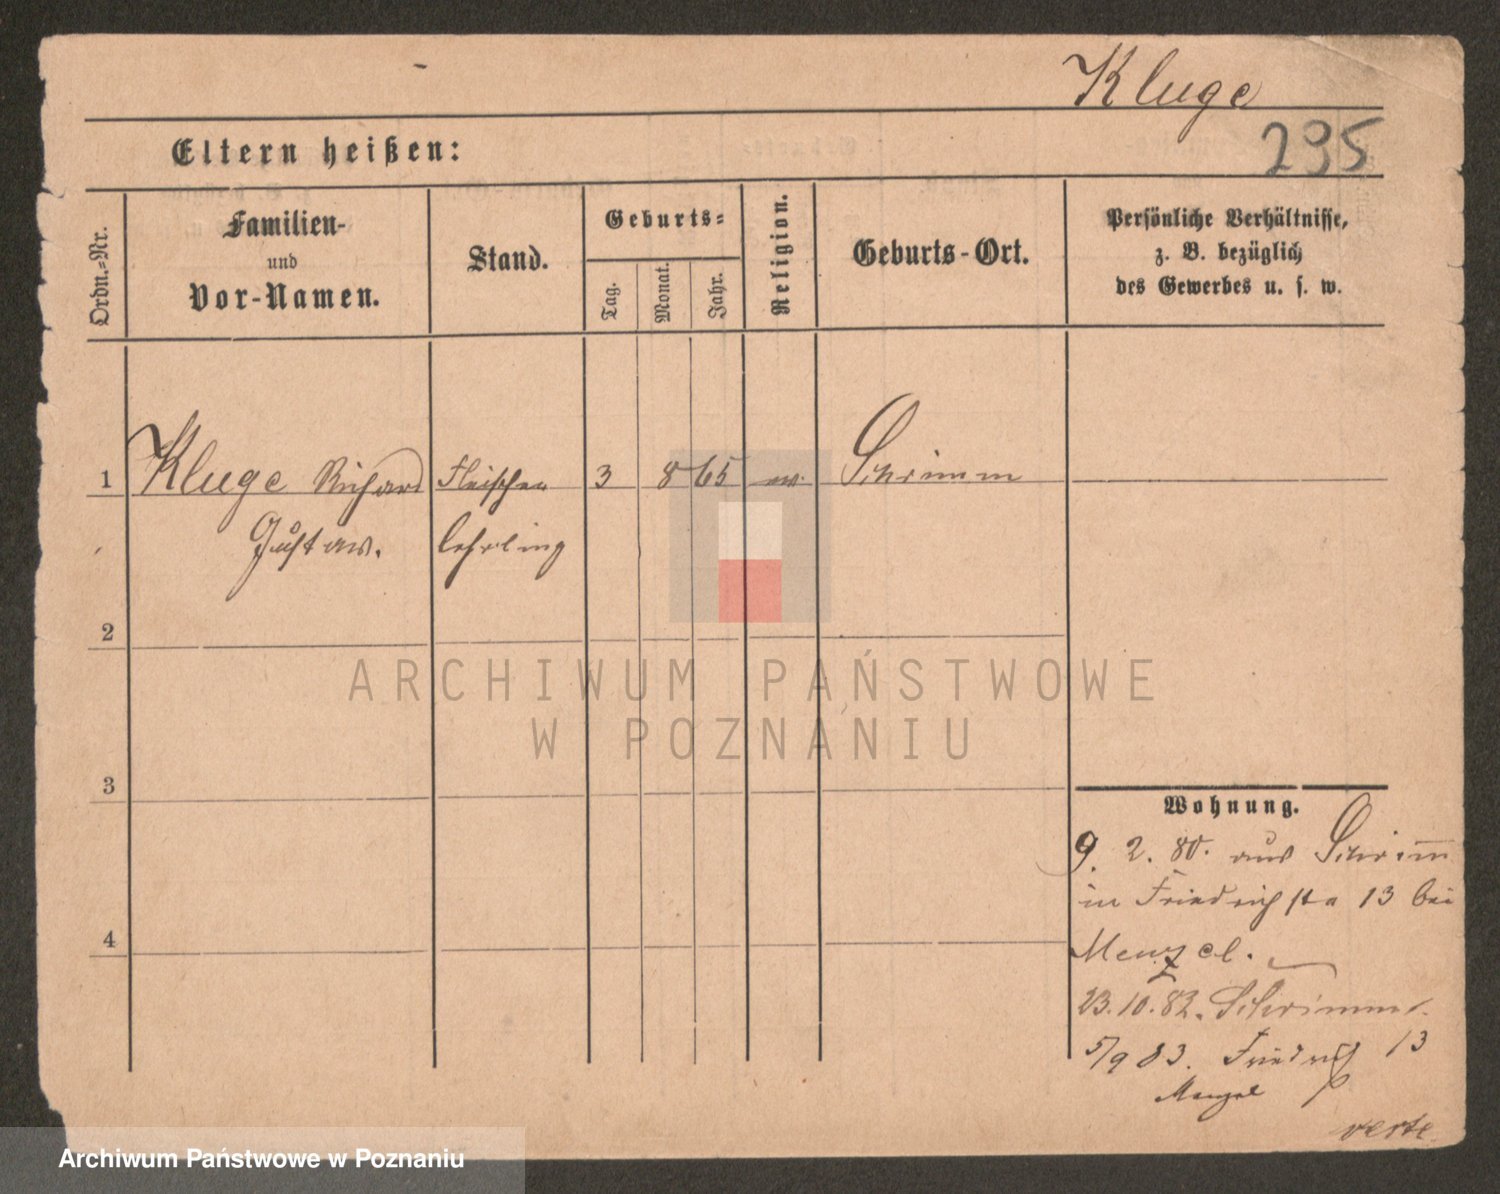 Kluge
295
Eltern heißen:
Ordn.=Nr.
Familien-
und
Vor-Namen.
Stand.
Geburts=
Tag.
Monat.
Jahr.
Religion.
Geburts-Ort.
Persönliche Verhältnisse,
z. B. bezüglich
des Gewerbes u. s. w.
1 Kluge Richard Fleischer 3 8 65 ev. Schrimm
Gustav. lehrling
2
3
4
Wohnung.
9. 2. 80. aus Schrimm
in Friedrichstr 13 bei
Menzel.
23.10.82. Schrimm
5/9 83. Friedrich 13
Menzel
verte
ARCHIWUM PAŃSTWOWE
W POZNANIU
Archiwum Państwowe w Poznaniu